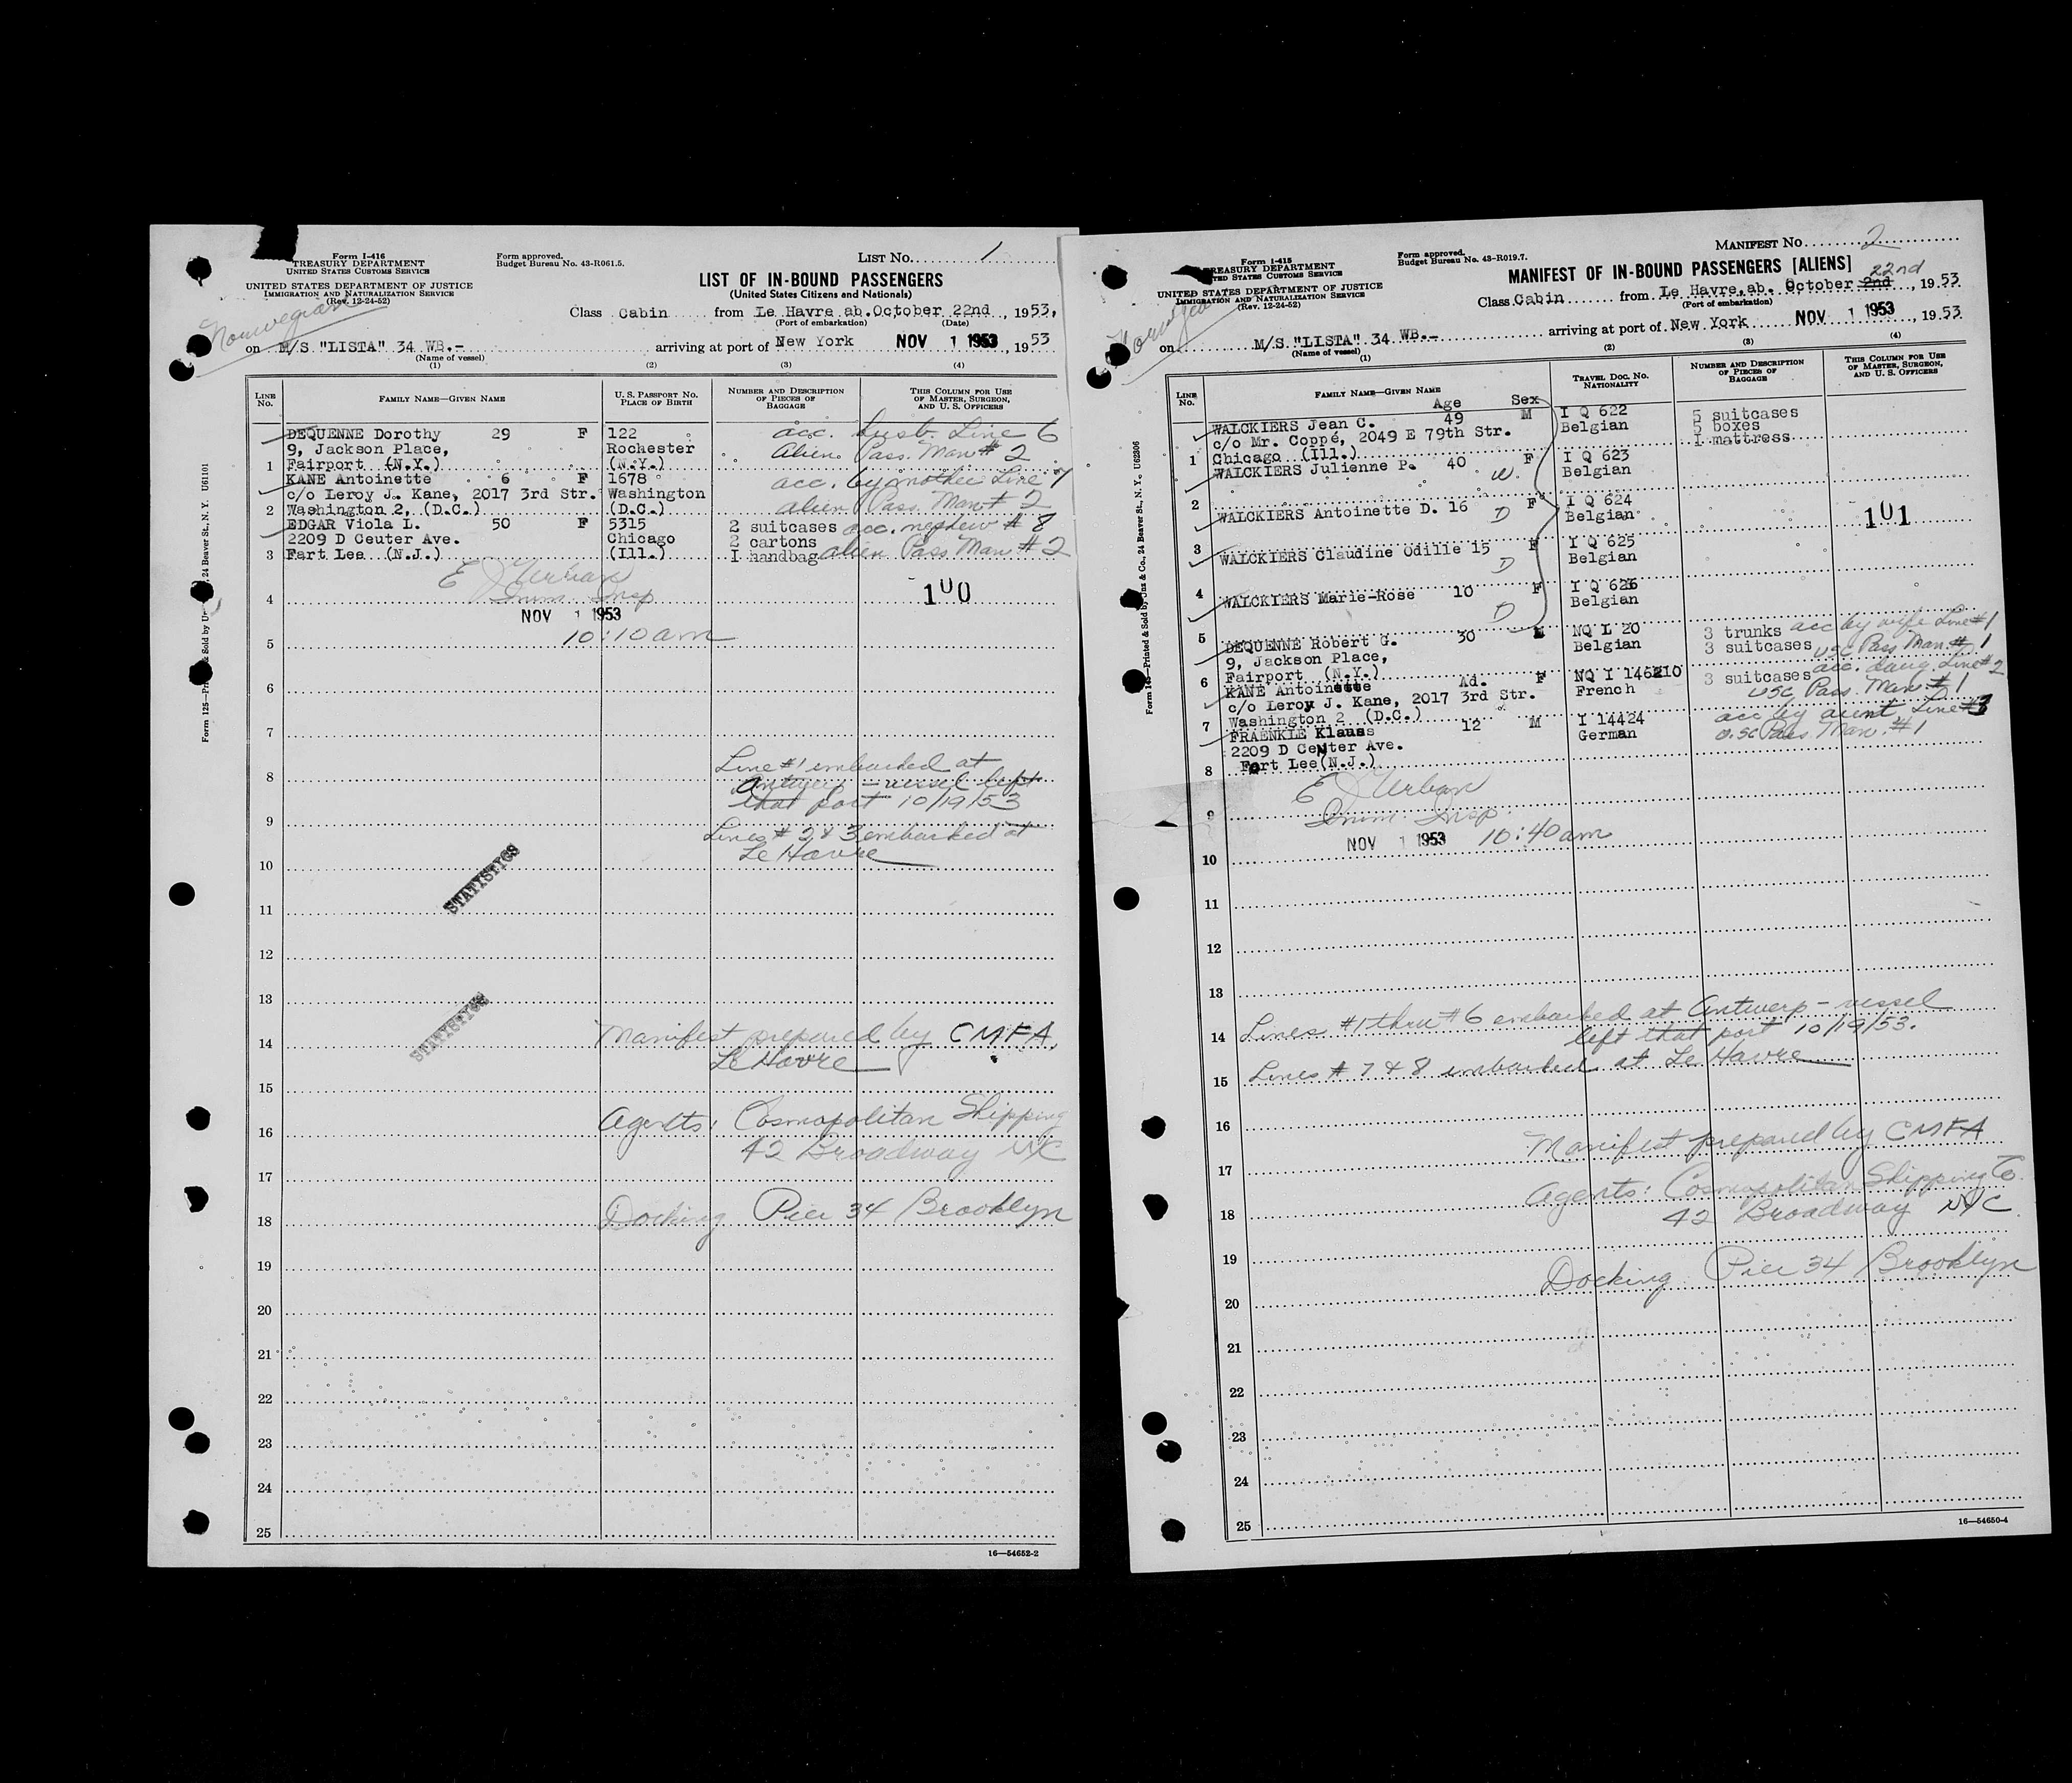 Form I-416
TREASURY DEPARTMENT
UNITED STATES CUSTOMS SERVICE
UNITED STATES DEPARTMENT OF JUSTICE
IMMIGRATION AND NATURALIZATION SERVICE
(Rev. 12-24-52)
Form approved.
Budget Bureau No. 43-R061.5.
LIST No. 1
LIST OF IN-BOUND PASSENGERS
(United States Citizens and Nationals)
Norwegian
Class Cabin from Le Havre ab. October 22nd, 1953,
(Port of embarkation) (Date)
on M/S "LISTA" 34 WB.- arriving at port of New York NOV 1 1953, 1953
(Name of vessel)
(1) (2) (3) (4)
LINE No. FAMILY NAME—GIVEN NAME U.S. PASSPORT NO. PLACE OF BIRTH NUMBER AND DESCRIPTION OF PIECES OF BAGGAGE THIS COLUMN FOR USE OF MASTER, SURGEON, AND U. S. OFFICERS
DEQUENNE Dorothy 29 F 122 acc. husb. Line 6
9, Jackson Place, Rochester Alien Pass. Man # 2
1 Fairport (N.Y.) (N.Y.)
KANE Antoinette 6 F 1678 acc. by mother Line 7
c/o Leroy J. Kane, 2017 3rd Str. Washington
2 Washington 2, (D.C.) (D.C.) alien Pass. Man # 2
EDGAR Viola L. 50 F 5315 2 suitcases acc. nephew # 8
2209 D Ceuter Ave. Chicago 2 cartons
3 Fart Lee (N.J.) (Ill.) I handbag alien Pass Man # 2
E J Urban
4 Imm. Insp 100
NOV 1 1953
5 10:10 am
6
7
Line #1 embarked at
8 Antwerp - vessel left
that port 10/19/53
9 Lines # 2 & 3 embarked at
Le Havre
10
STATISTICS
11
12
13
STATISTICS
14 Manifest prepared by CMFA,
Le Havre
15
16 Agents: Cosmopolitan Shipping
42 Broadway NYC
17
18 Docking Pier 34 Brooklyn
19
20
21
22
23
24
25
16—54652-2
24 Beaver St., N. Y. U61101
Form I-415
TREASURY DEPARTMENT
UNITED STATES CUSTOMS SERVICE
UNITED STATES DEPARTMENT OF JUSTICE
IMMIGRATION AND NATURALIZATION SERVICE
(Rev. 12-24-52)
Form approved.
Budget Bureau No. 43-R019.7.
MANIFEST No. 2
MANIFEST OF IN-BOUND PASSENGERS [ALIENS]
Norwegian
22nd
Class Cabin from Le Havre, ab. October 2nd, 1953
(Port of embarkation)
on M/S "LISTA" 34 WB.- arriving at port of New York NOV 1 1953, 1953
(Name of vessel)
(1) (2) (3) (4)
LINE No. FAMILY NAME—GIVEN NAME TRAVEL DOC. NO. NATIONALITY NUMBER AND DESCRIPTION OF PIECES OF BAGGAGE THIS COLUMN FOR USE OF MASTER, SURGEON, AND U. S. OFFICERS
Age Sex
WALCKIERS Jean C. 49 M I Q 622 5 suitcases
c/o Mr. Coppé, 2049 E 79th Str. Belgian 5 boxes
1 Chicago (Ill.) I mattress
WALCKIERS Julienne P. 40 F I Q 623
W. Belgian
2 WALCKIERS Antoinette D. 16 F I Q 624
D Belgian 101
3 WALCKIERS Claudine Odille 15 F I Q 625
D Belgian
4 WALCKIERS Marie-Rose 10 F I Q 626
D Belgian
5 DEQUENNE Robert G. 30 M NQ L 20 3 trunks acc by wife Line #1
9, Jackson Place, Belgian 3 suitcases USC Pass Man # 1
6 Fairport (N.Y.) acc. daug. Line #2
KANE Antoinette Ad. F NQ I 146210 3 suitcases
c/o Leroy J. Kane, 2017 3rd Str. French USC Pass. Man. # 1
7 Washington 2 (D.C.)
FRAENKLE Klauss 12 M I 14424 acc by aunt Line #3
2209 D CeNter Ave. German USC Pass. Man. #1
8 Fort Lee (N.J.)
E J Urban
9 Imm. Insp.
NOV 1 1953 10:40 am
10
11
12
13
14 Lines #1 thru #6 embarked at Antwerp - vessel
left that port 10/19/53.
15 Lines # 7 & 8 embarked at Le Havre
16
17 Manifest prepared by CMFA
18 Agents: Cosmopolitan Shipping Co.
42 Broadway NYC
19
20 Docking Pier 34 Brooklyn
21
22
23
24
25
16—54650-4
24 Beaver St., N. Y. U62206